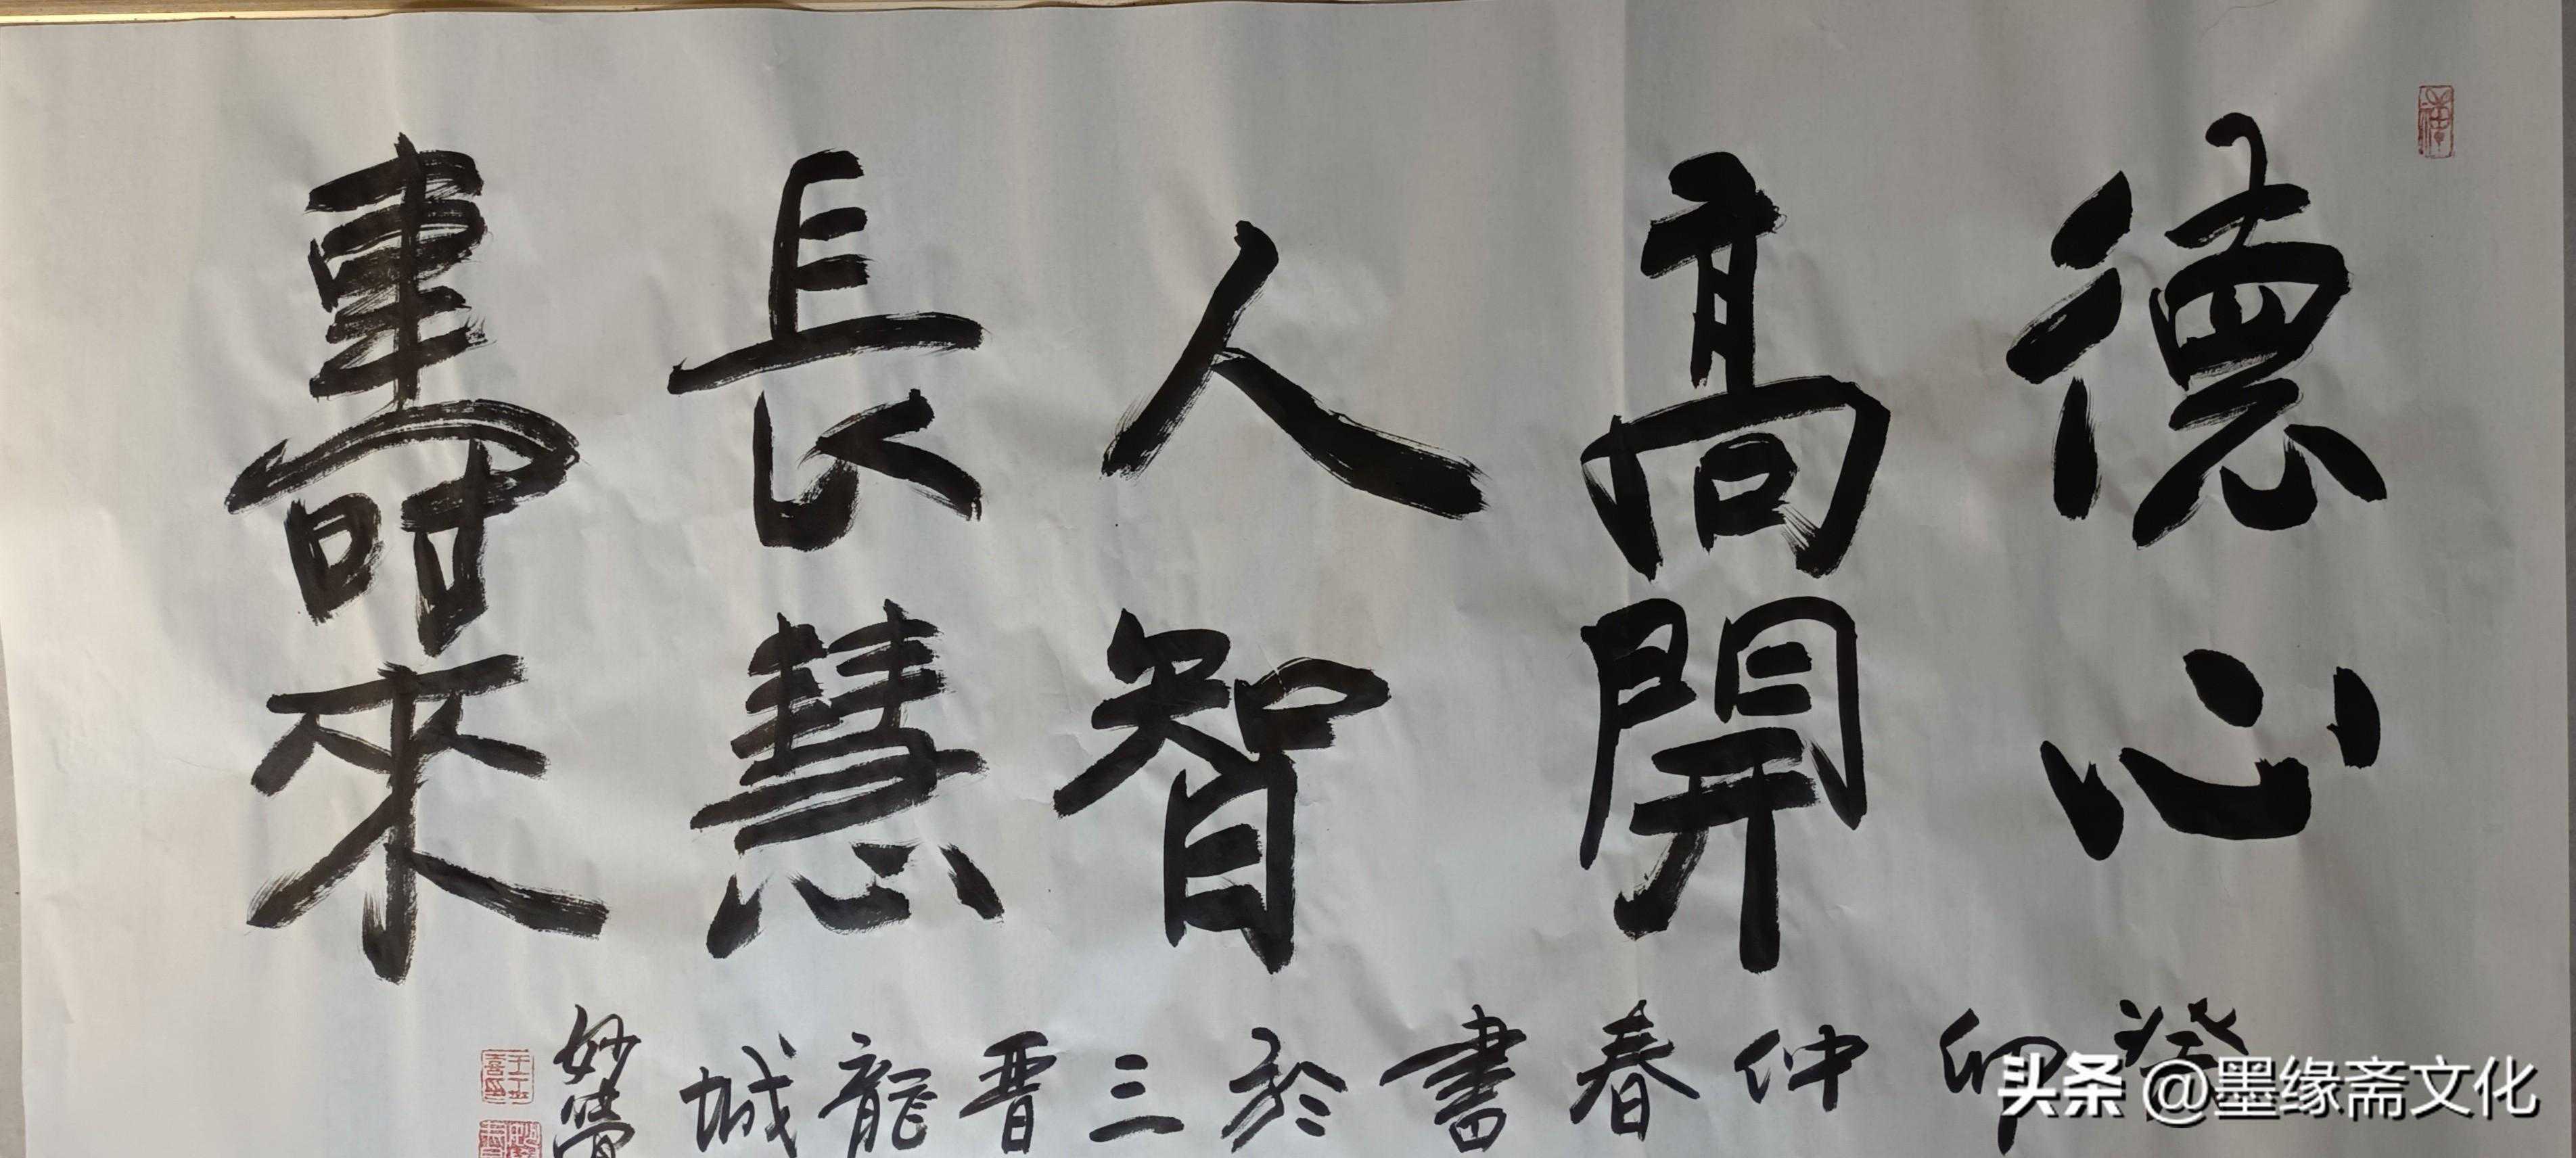 德高人長壽
心開智慧來
癸卯仲春書於三晋龍城
妙
头条 @墨缘斋文化